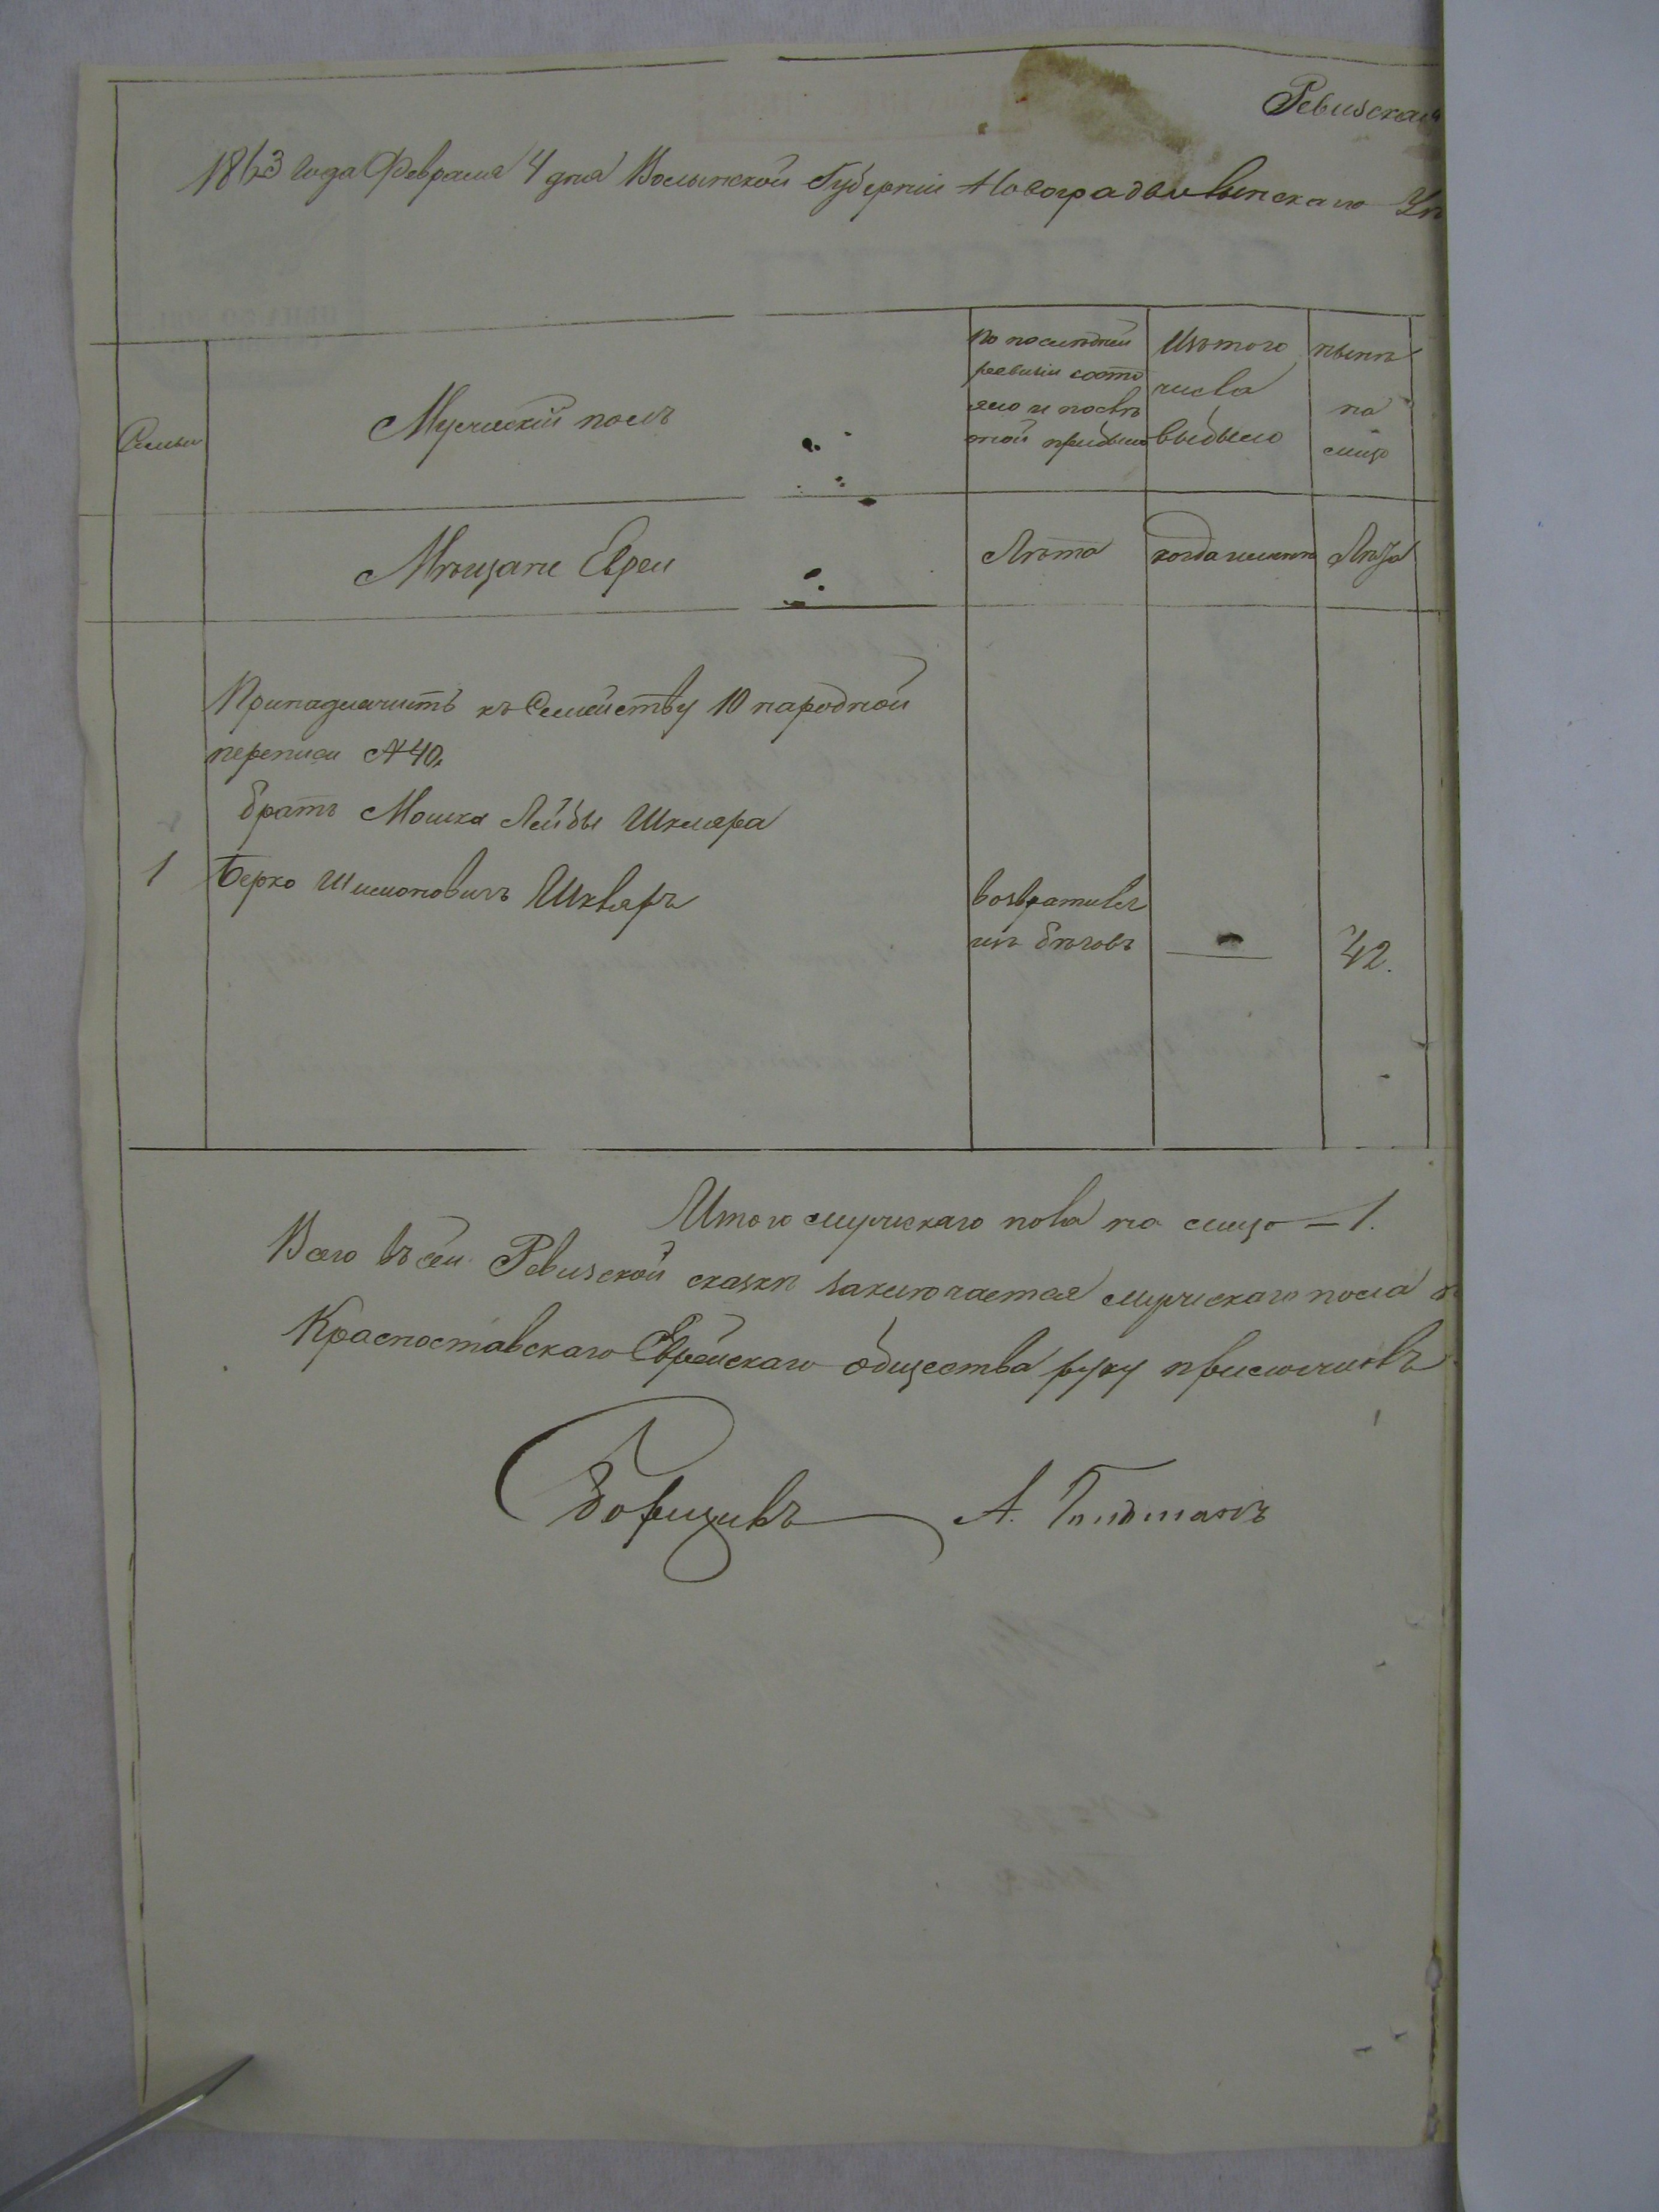 Ревизская
1863 года Февраля 4 дня Волынской Губернии Новоградволынскаго Уѣ
Семьи
Мужескій полъ
По послѣдней
ревизіи состо
яло и послѣ
оной прибыло
Изъ того
числа
выбыло
нынѣ
на
лицо
Мѣщане Евреи
Лѣта
когда именно
Лѣта
Принадлежитъ къ Семейству 10 народной
переписи №40.
братъ Мошка Лейбы Шкляра
1 Берко Шимоновичъ Шкляръ
возвратився
изъ бѣговъ
—
42.
Итого мужскаго пола на лицо – 1.
Всего въ сей Ревизской сказкѣ заключается мужскаго пола
Красноставскаго Еврейскаго общества руку приложилъ
Сборщикъ А. Гольдманъ